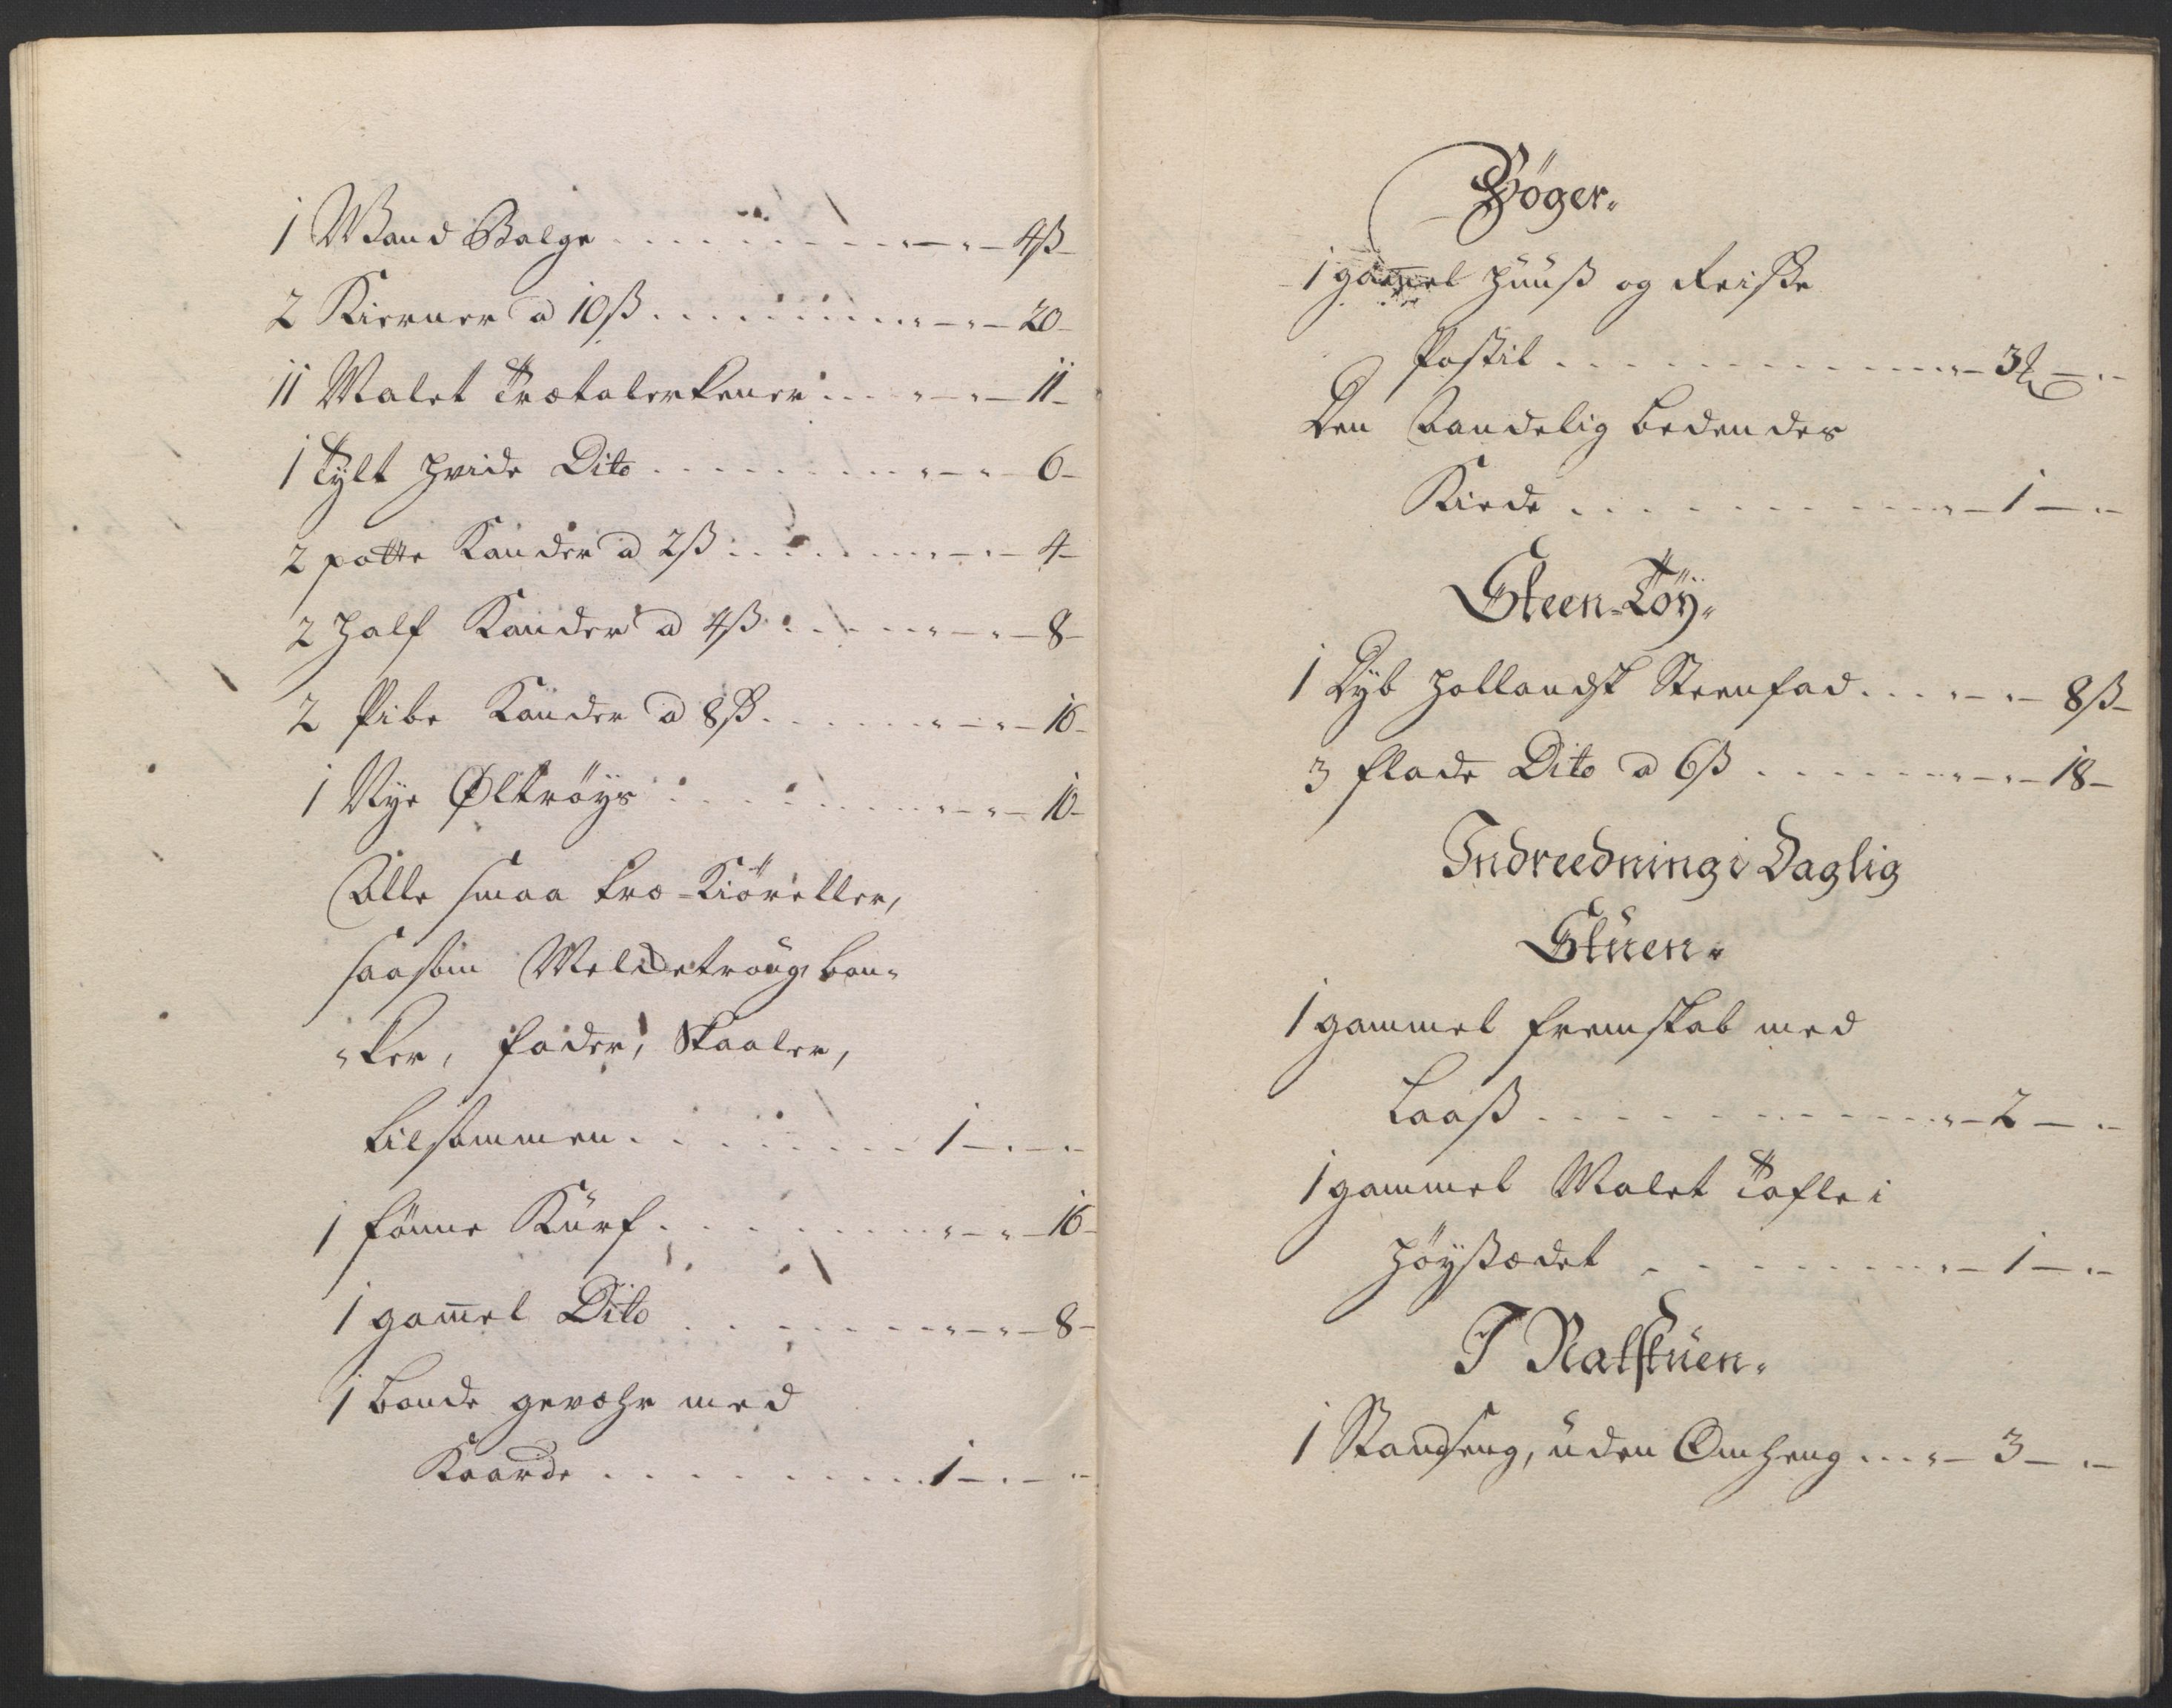 1 Wand Balge . . . . . . . . . . „ — „ — 4ß —
2 Kierner a 10ß . . . . . . . . . „ — „ — 20 —
11 Malet Trætalerkener . . . . „ — „ — 11 —
1 Tylt hvide Dito . . . . . . . . „ — „ — 6 —
2 potte Kander a 2ß . . . . . . „ — „ — 4 —
2 Half Kander a 4ß . . . . . . „ — „ — 8 —
2 Pibe Kander a 8ß . . . . . . „ — „ — 16 —
1 Nye Øltrøys . . . . . . . . . „ — „ — 10 —
Alle smaa træ-Kiøreller,
saasom Meldetroug, bom-
-ker, fader, Skaaler,
tilsammen . . . . . . . . . 1 — „ — „ —
1 fönne Kürf . . . . . . . . . „ — „ — 16 —
1 gam̄el Dito . . . . . . . . „ — „ — 8 —
1 bonde gevæhr med
Kaarde . . . . . . . . . 1 — „ — „ —
Bøger.
1 gam̄el Hüüß og Reiße
Postil . . . . . . . . . . . „ — 3ß — „ —
Den Aandelig bedendes
Kiede . . . . . . . . . . . „ — 1 — „ —
Steen-Töÿ.
1 Dÿb hollandsk Steenfad . . . „ — „ — 8ß —
3 flade Dito a 6ß . . . . . . . „ — „ — 18 —
Indreedning i Daglig
Stüen.
1 gammel fremskab med
Laaß . . . . . . . . . . . „ — 2 — „ —
1 gammel Malet Tafle i
Höyßædet . . . . . . . . . „ — 1 — „ —
I Natstüen.
1 Standseng, üden Omheng . . . „ — 3 — „ —